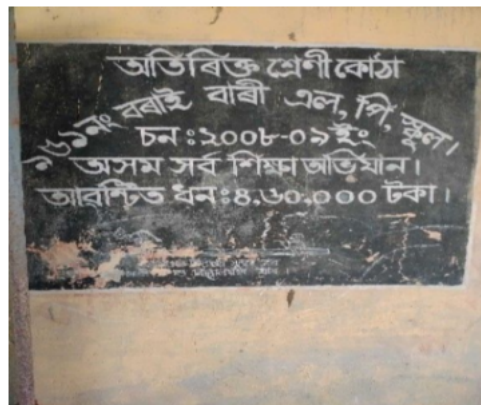 অতিৰিক্ত শ্ৰেণী কোঠা
২৬১নং বৰাই বাৰী এল, পি, স্কুল।
চন :২০০৮-০৯ ইং
অসম সৰ্ব শিক্ষা অভিযান।
আবণ্টিত ধন :৪,৬০,০০০ টকা।